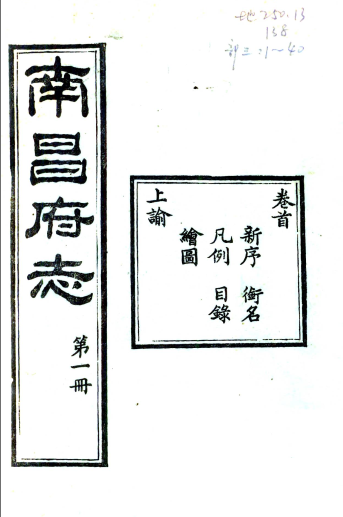 地250.13
138
部三:1~40
南昌府志
第一冊
卷首
新序 銜名
凡例 目錄
繪圖
上諭